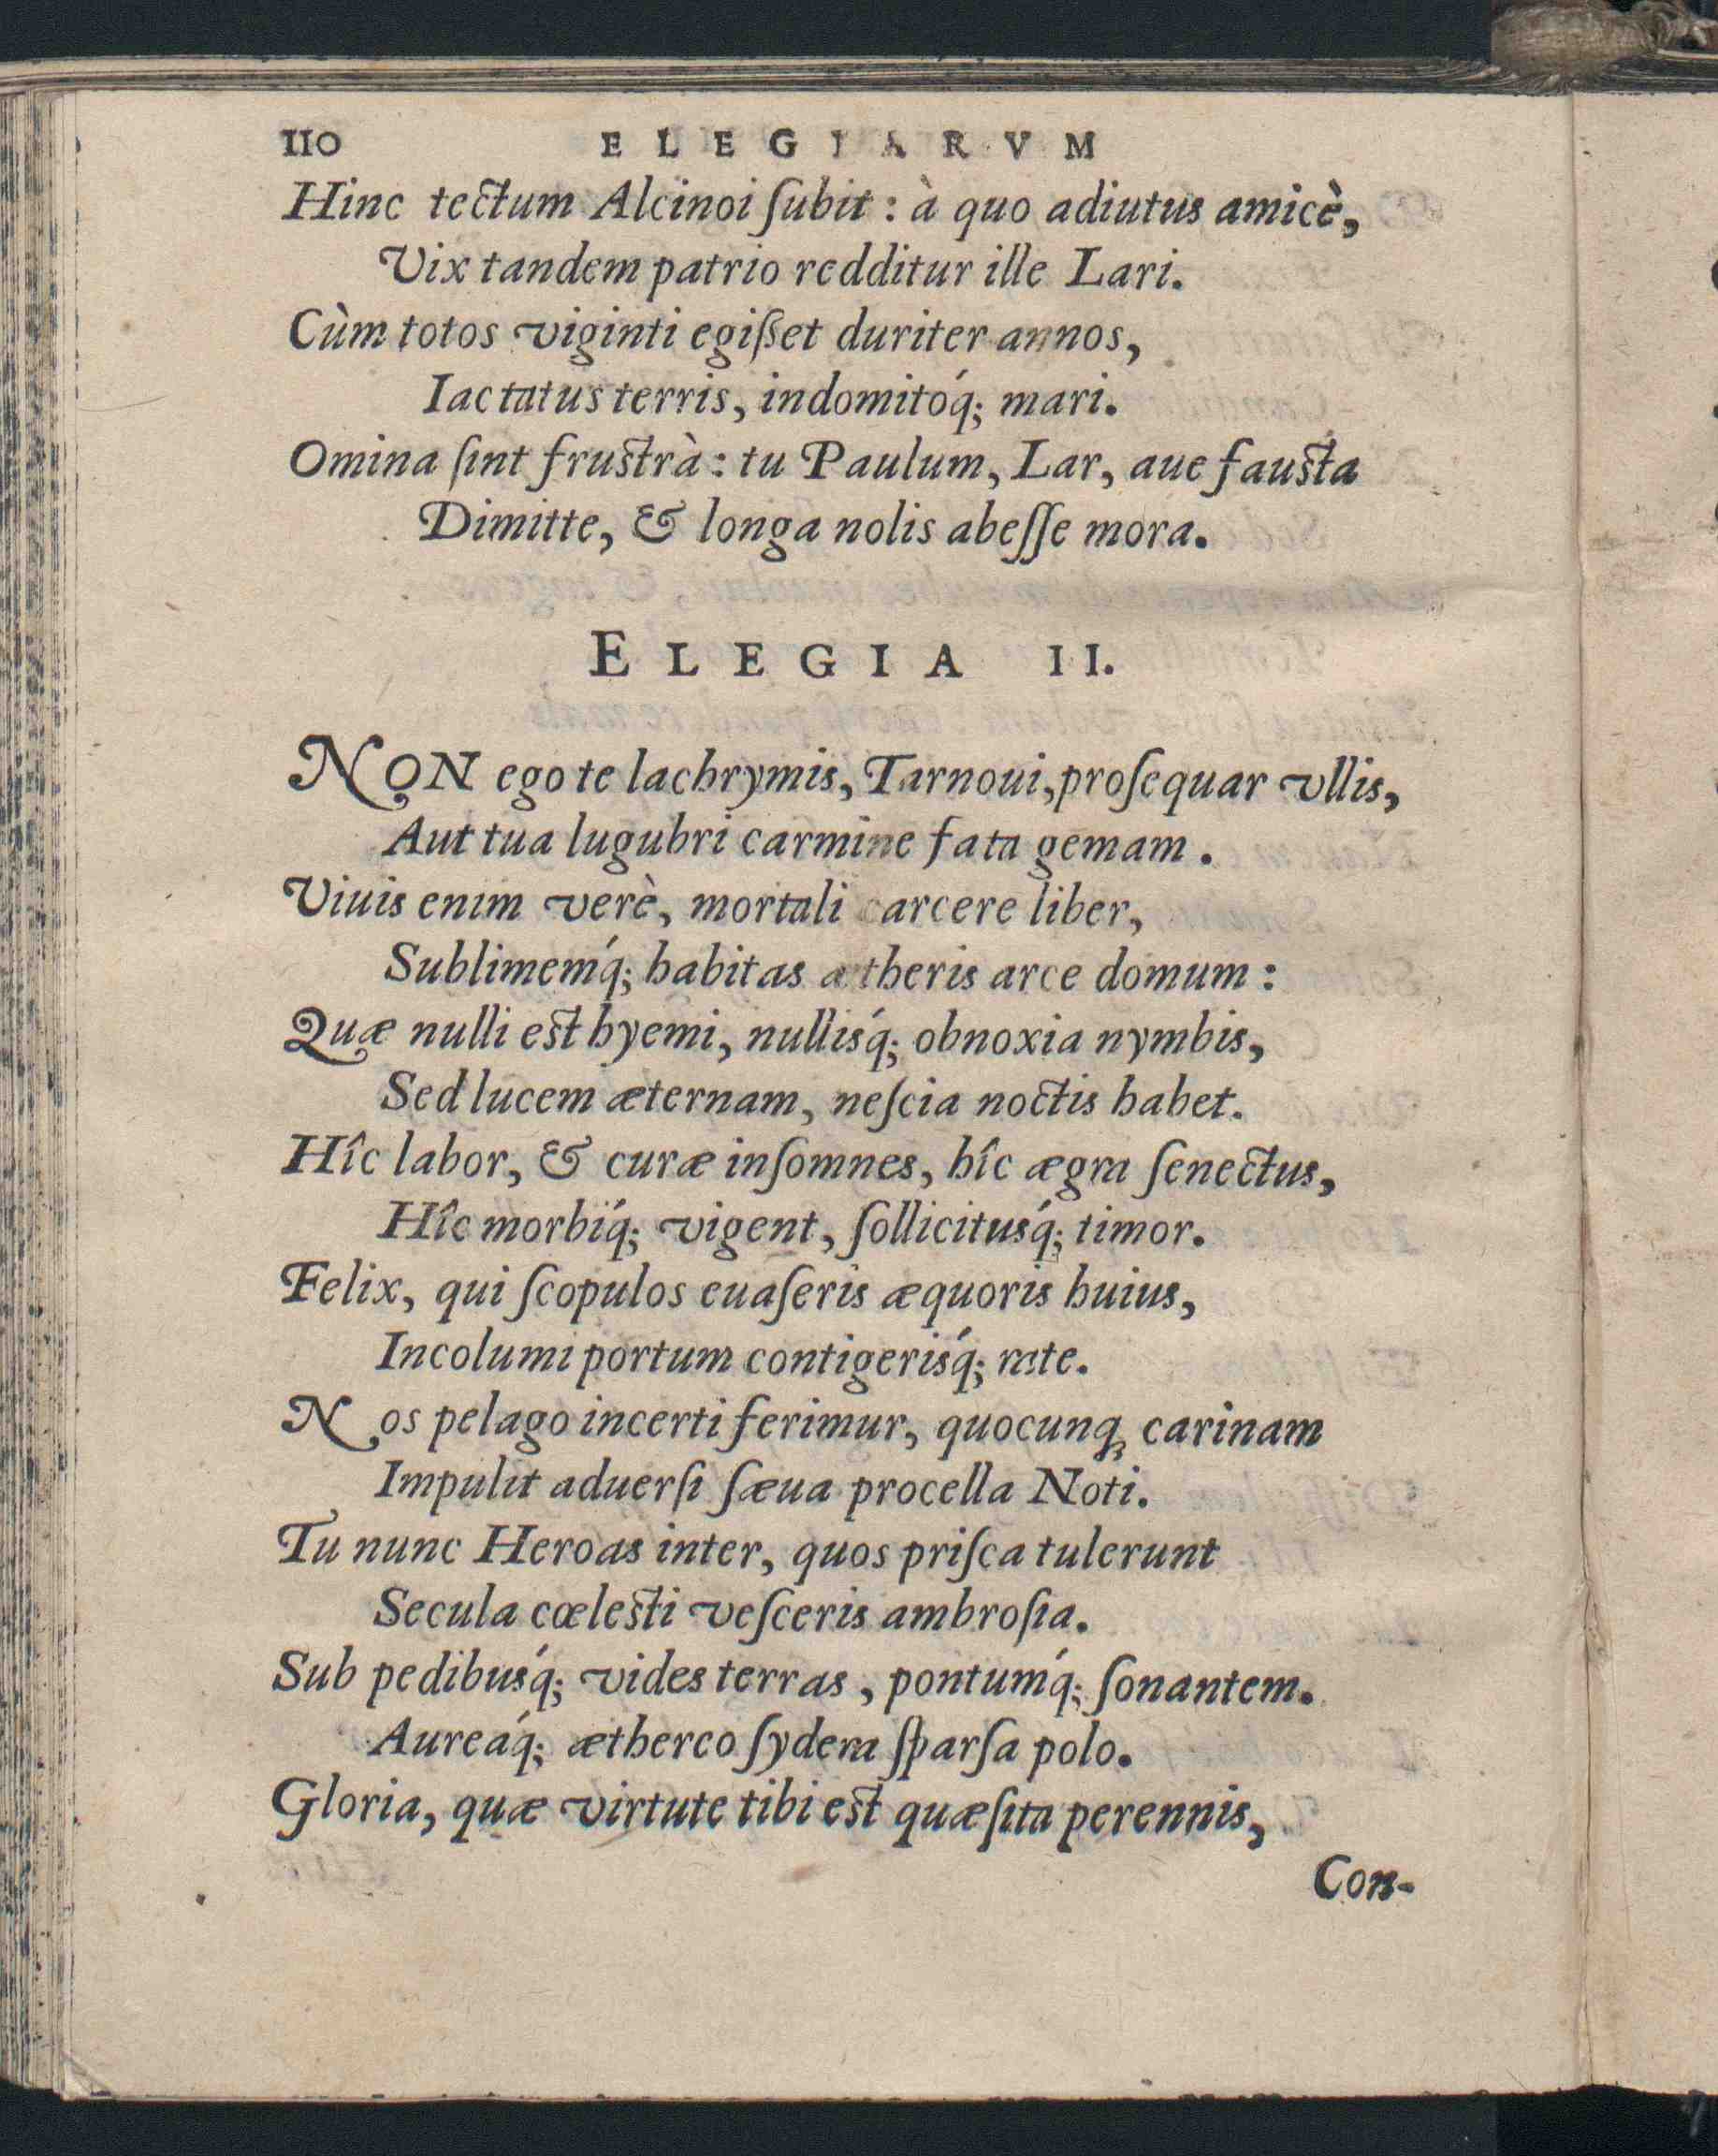 110 ELEGIARVM
Hinc tectum Alcinoi ſubit: à quo adiutus amicè,
Vix tandem patrio redditur ille Lari.
Cùm totos viginti egiſſet duriter annos,
Iactatus terris, indomitóq; mari.
Omina ſint fruſtrà: tu Paulum, Lar, aue fauſta
Dimitte, & longa nolis abeſſe mora.
ELEGIA II.
NON ego te lachrymis, Tarnoui, proſequar vllis,
Aut tua lugubri carmine fata gemam.
Viuis enim verè, mortali carcere liber,
Sublimemq́; habitas ætheris arce domum:
Quæ nulli eſt hyemi, nullisq́; obnoxia nymbis,
Sed lucem æternam, neſcia noctis habet.
Hîc labor, & curæ inſomnes, hîc ægra ſenectus,
Hîc morbiq́; vigent, ſollicitusq́; timor.
Felix, qui ſcopulos euaſeris æquoris huius,
Incolumi portum contigerisq́; rate.
Nos pelago incerti ferimur, quocunq; carinam
Impulit aduerſi ſæua procella Noti.
Tu nunc Heroas inter, quos priſca tulerunt
Secula cœleſti veſceris ambroſia.
Sub pedibusq́; vides terras, pontumq́; ſonantem.
Aureáq; æthereo ſydera ſparſa polo.
Gloria, quæ virtute tibi eſt quæſita perennis,
Con-